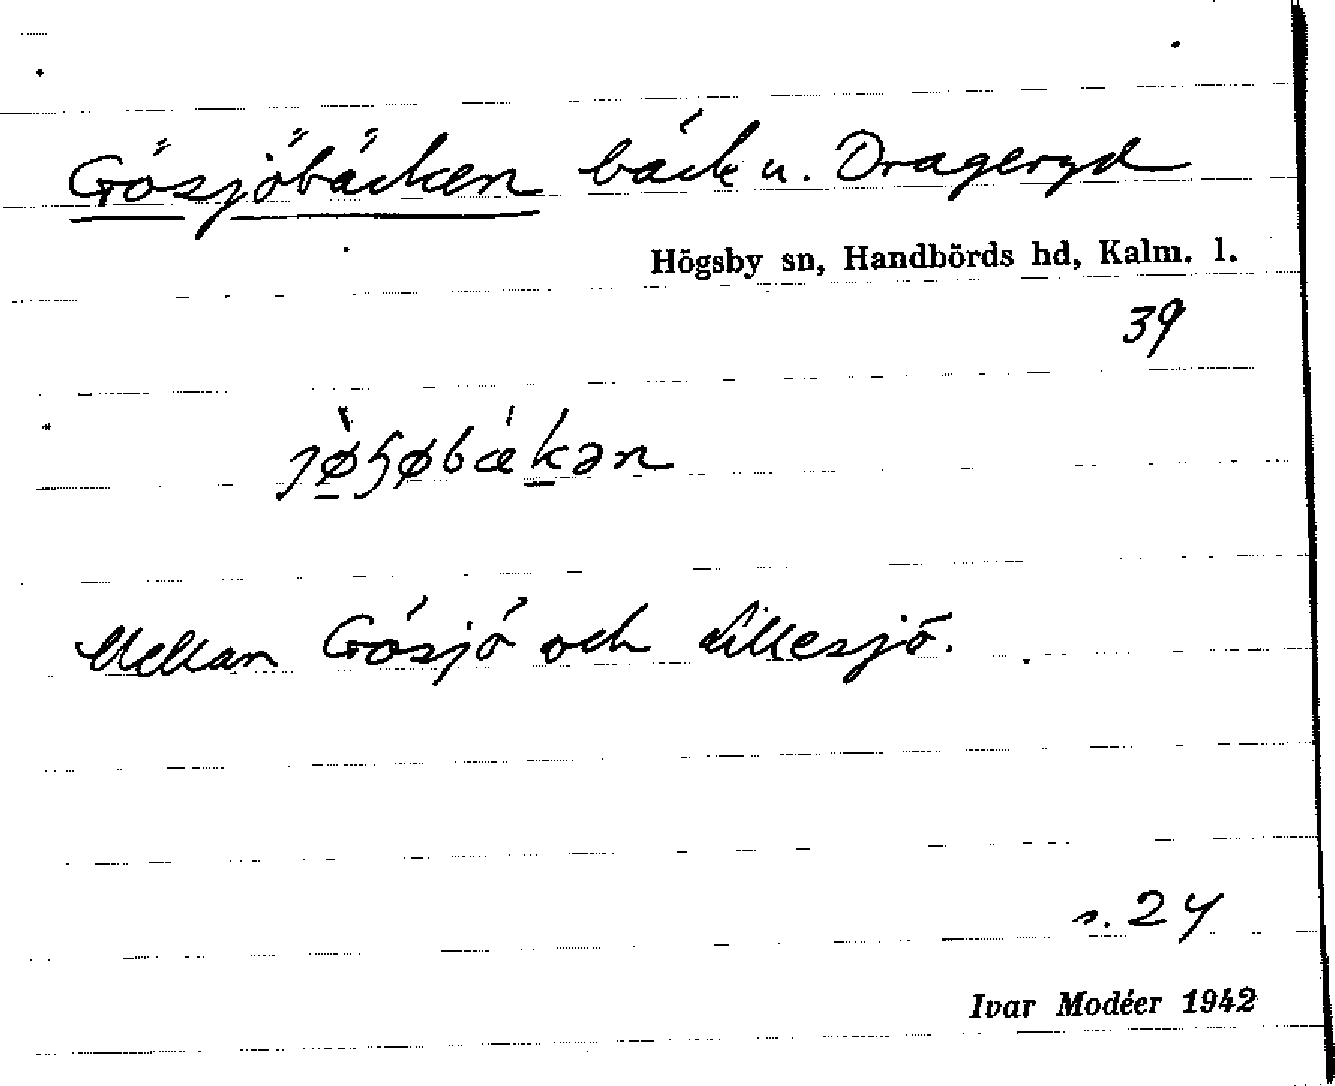 Gösjöbäcken bäck u. Drageryd
Högsby sn, Handbörds hd, Kalm. l.
39
Mellan Gösjö och Lillesjö.
s. 24
Ivar Modéer 1942